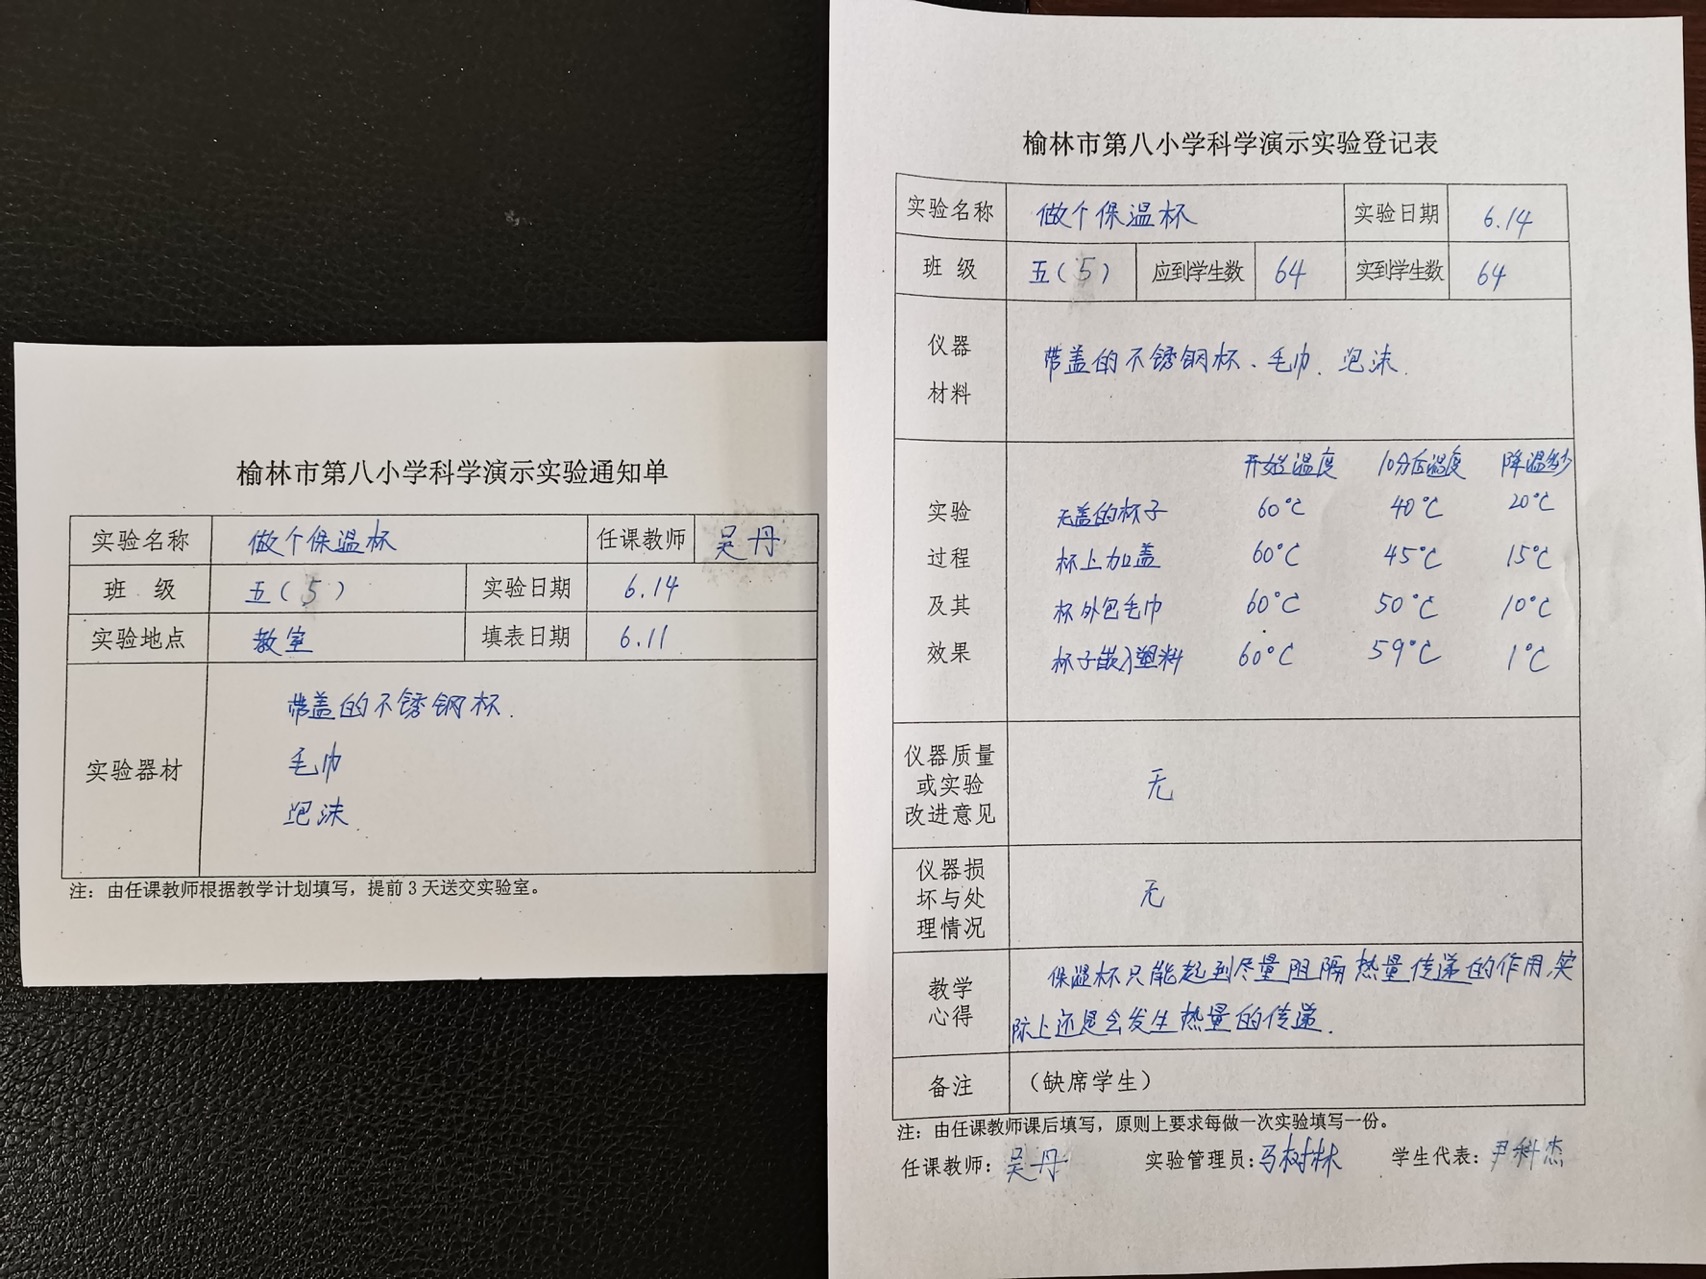 榆林市第八小学科学演示实验通知单
实验名称 做个保温杯 任课教师 吴丹
班 级 五(5) 实验日期 6.14
实验地点 教室 填表日期 6.11
实验器材
带盖的不锈钢杯.
毛巾
泡沫.
注：由任课教师根据教学计划填写，提前3天送交实验室。
榆林市第八小学科学演示实验登记表
实验名称 做个保温杯 实验日期 6.14
班 级 五(5) 应到学生数 64 实到学生数 64
仪器
材料
带盖的不锈钢杯、毛巾、泡沫.
实验
过程
及其
效果
开始温度 10分后温度 降温多少
无盖的杯子 60℃ 40℃ 20℃
杯上加盖 60℃ 45℃ 15℃
杯外包毛巾 60℃ 50℃ 10℃
杯子嵌入塑料 60℃ 59℃ 1℃
仪器质量
或实验
改进意见
无
仪器损
坏与处
理情况
无
教学
心得
保温杯只能起到尽量阻隔热量传递的作用,实
际上还是会发生热量的传递.
备注 （缺席学生）
注：由任课教师课后填写，原则上要求每做一次实验填写一份。
任课教师：吴丹 实验管理员：马树林 学生代表：尹科杰